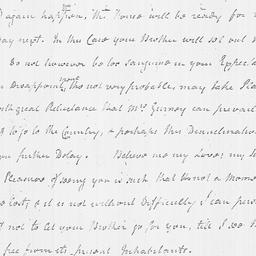 again happen, the House will be ready for
day next. In this Case your Brother will set out
Do not however be too sanguine in your
Disappointment, tho not very probable may take
great Reluctance that Mrs Gurney can prevail
to go to the Country, & perhaps this Disinclination
further Delay. Believe me my Love, my
Pleasure of seeing you is such that I know not a Mome
lost, & it is not without Difficulty I can
not to let your Brother go for you, till I see
free from its present Inhabitants.